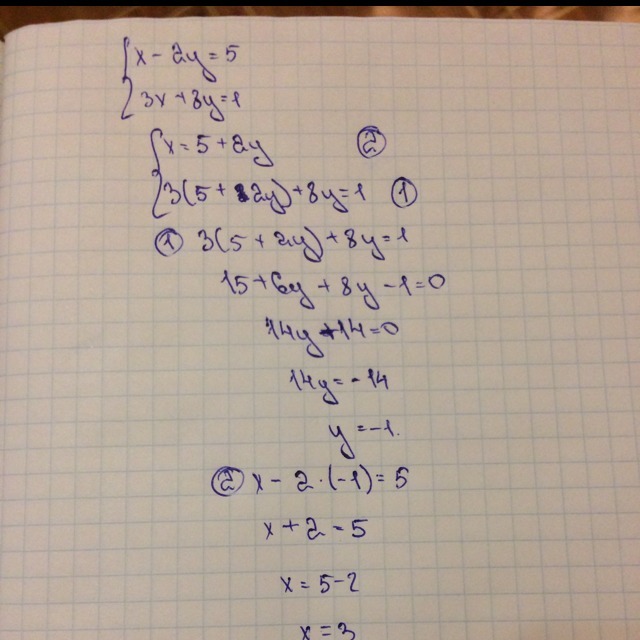 x - 2y = 5
3x + 8y = 1
x = 5 + 2y ②
3(5 + 2y) + 8y = 1 ①
① 3(5 + 2y) + 8y = 1
15 + 6y + 8y - 1 = 0
14y + 14 = 0
14y = - 14
y = -1.
② x - 2 · (-1) = 5
x + 2 = 5
x = 5 - 2
x = 3